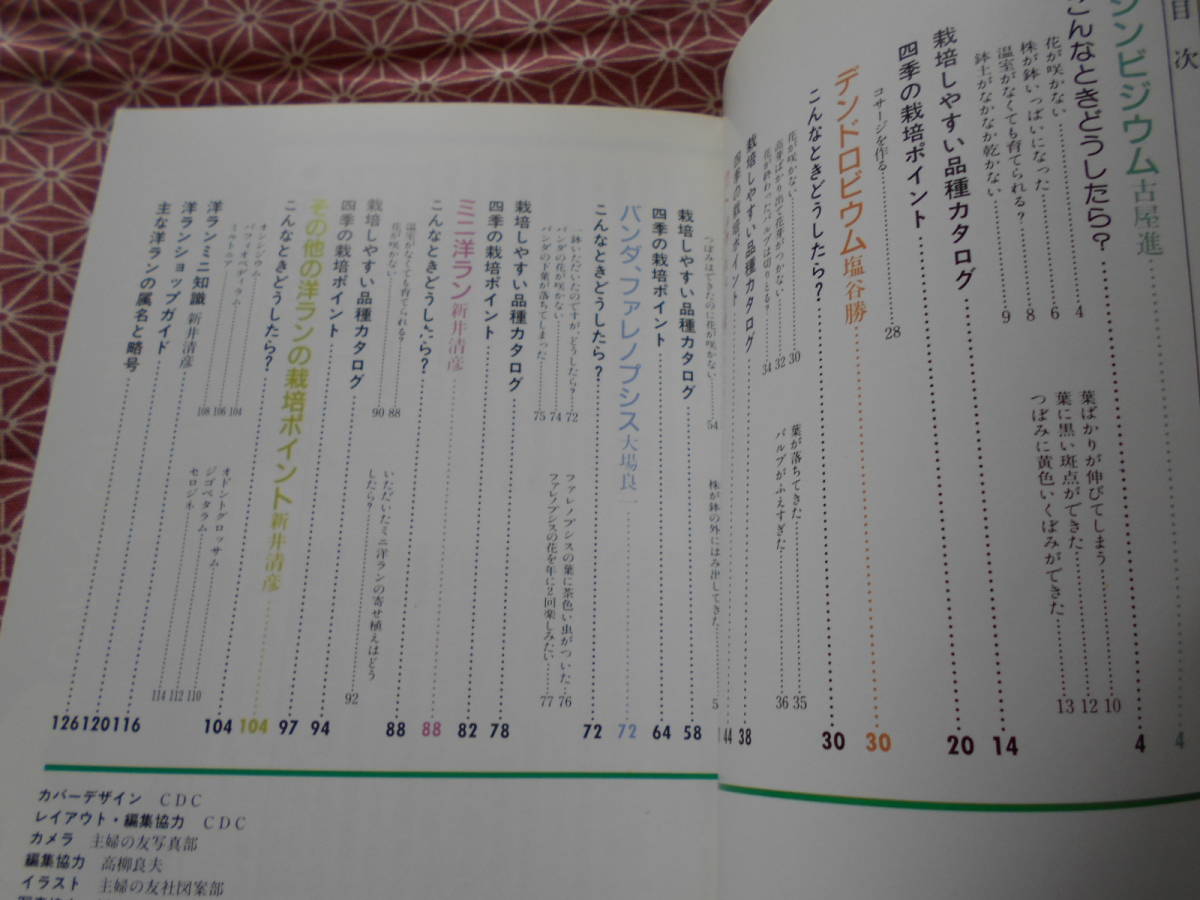 目次
シンビジウム 古屋進 4
こんなときどうしたら? 4
花が咲かない 4
株が鉢いっぱいになった 6
温室がなくても育てられる? 8
鉢土がなかなか乾かない 9
葉ばかりが伸びてしまう 10
葉に黒い斑点ができた 12
つぼみに黄色いくぼみができた 13
四季の栽培ポイント 14
栽培しやすい品種カタログ 20
コサージを作る 28
デンドロビウム 塩谷勝 30
こんなときどうしたら? 30
花が咲かない 30
高芽ばかり出て花芽がつかない 32
花が終わったバルブは切りとる? 34
葉が落ちてきた 35
バルブがふえすぎた 36
栽培しやすい品種カタログ 38
四季の栽培ポイント 44
つぼみはできたのに花が咲かない 54
株が鉢の外にはみ出してきた 5
栽培しやすい品種カタログ 58
四季の栽培ポイント 64
バンダ、ファレノプシス 大場良一 72
こんなときどうしたら? 72
一鉢いただいたのですが、どうしたら? 72
バンダの花が咲かない 74
バンダの下葉が落ちてしまった 75
ファレノプシスの葉に茶色い虫がついた 76
ファレノプシスの花を年に2回楽しみたい 77
栽培しやすい品種カタログ 78
四季の栽培ポイント 82
ミニ洋ラン 新井清彦 88
こんなときどうしたら? 88
温室がなくても育てられる? 88
花が咲かない 90
いただいたミニ洋ランの寄せ植えはどうしたら? 92
栽培しやすい品種カタログ 94
四季の栽培ポイント 97
その他の洋ランの栽培ポイント 新井清彦 104
こんなときどうしたら? 104
オンシジウム 104
パフィオペディラム 106
ミルトニア 108
オドントグロッサム 110
ジゴペタラム 112
セロジネ 114
洋ランミニ知識 新井清彦 116
洋ランショップガイド 120
主な洋ランの属名と略号 126
カバーデザイン CDC
レイアウト・編集協力 CDC
カメラ 主婦の友写真部
編集協力 高柳良夫
イラスト 主婦の友社図案部